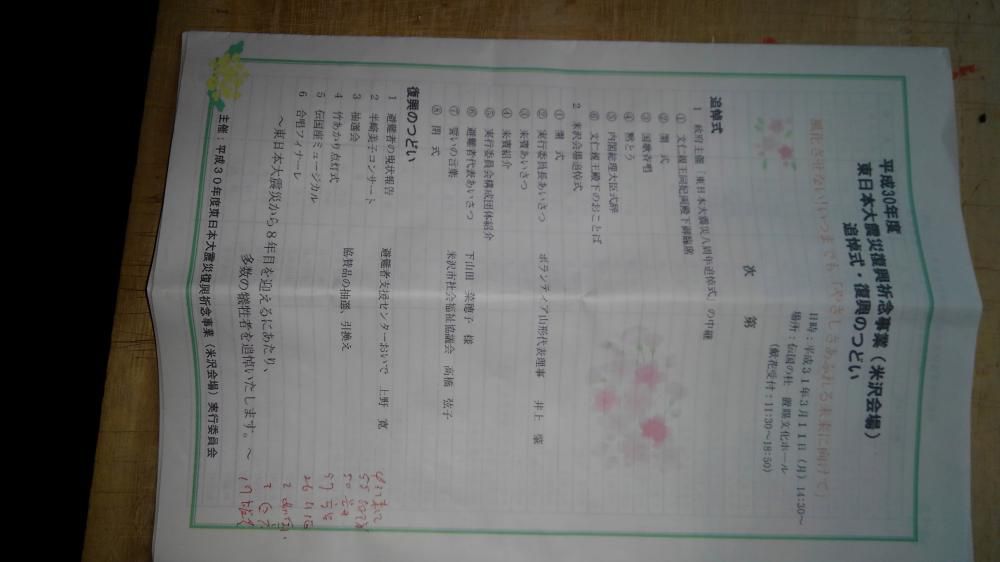 平成30年度
東日本大震災復興祈念事業（米沢会場）
追悼式・復興のつどい
風化させない！いつまでも「やさしさあふれる未来に向けて」
日時：平成31年3月11日（月）14:30～
場所：伝国の杜 置賜文化ホール
（献花受付：11:30～18:50）
次 第
追悼式
1 政府主催「東日本大震災八周年追悼式」の中継
① 文仁親王同妃両殿下御臨席
② 開 式
③ 国歌斉唱
④ 黙とう
⑤ 内閣総理大臣式辞
⑥ 文仁親王殿下のおことば
2 米沢会場追悼式
① 開 式
② 実行委員長あいさつ ボランティア山形代表理事 井上 肇
③ 来賓あいさつ
④ 来賓紹介
⑤ 実行委員会構成団体紹介
⑥ 避難者代表あいさつ 下山田 菜穂子 様
⑦ 誓いの言葉 米沢市社会福祉協議会 高橋 弦子
⑧ 閉 式
復興のつどい
1 避難者の現状報告 避難者支援センターおいで 上野 寛
2 半崎美子コンサート
3 抽選会 協賛品の抽選、引換え
4 竹あかり点灯式
5 伝国座ミュージカル
6 合唱フィナーレ
～東日本大震災から8年目を迎えるにあたり、
多数の犠牲者を追悼いたします。～
主催：平成30年度東日本大震災復興祈念事業（米沢会場）実行委員会